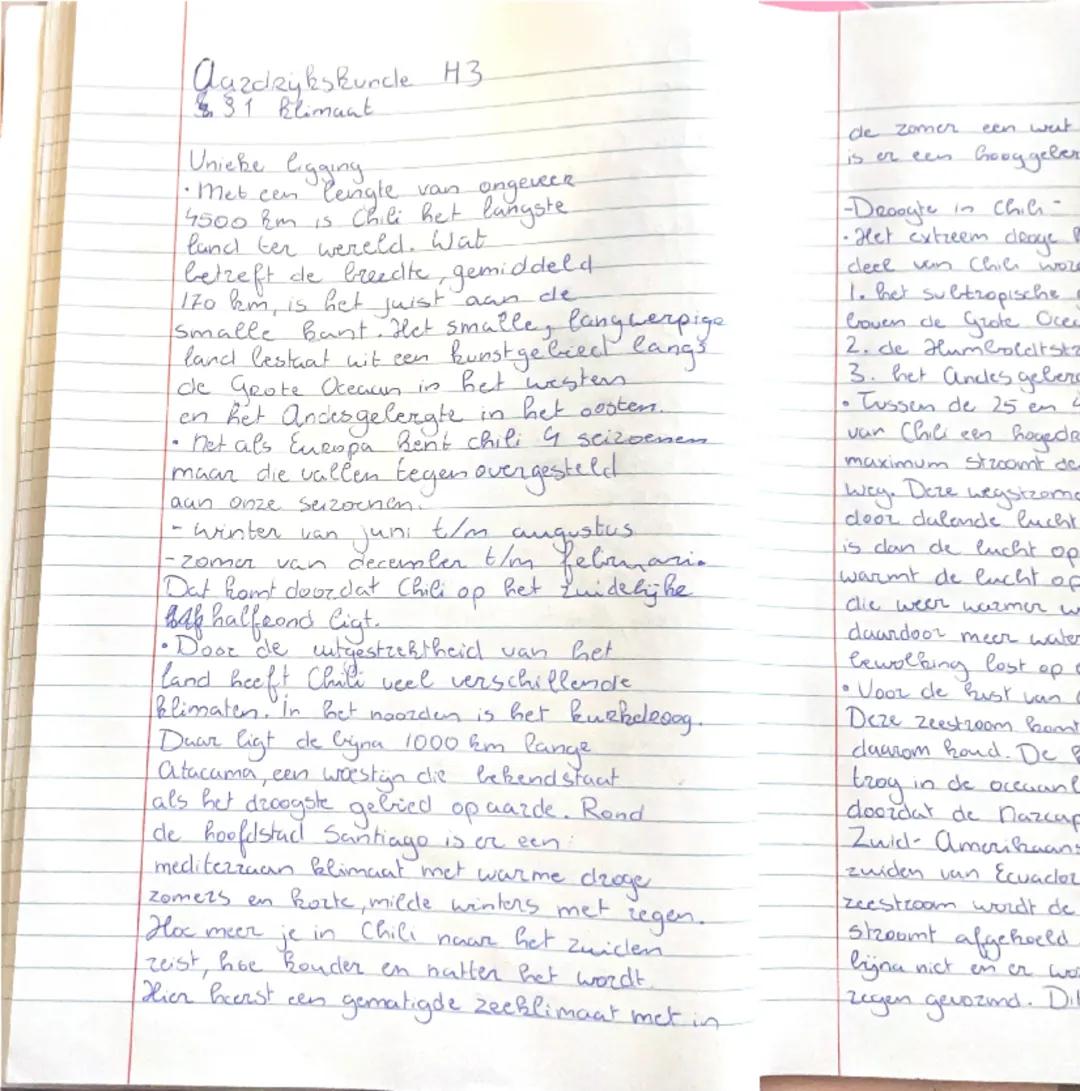 Aardrijkskunde H3
§ 3.1 klimaat
Unieke ligging
• Met een lengte van ongeveer
4500 km is Chili het langste
land ter wereld. Wat
betreft de breedte, gemiddeld
170 km, is het juist aan de
smalle kant. Het smalle, langwerpige
land bestaat uit een kunstgebied langs
de Grote Oceaan in het westen
en het Andesgebergte in het oosten.
• Net als Europa kent chili 4 seizoenen
maar die vallen tegenovergesteld
aan onze seizoenen.
- winter van juni t/m augustus
- zomer van december t/m februari.
Dat komt doordat Chili op het zuidelijke
halfrond ligt.
• Door de uitgestrektheid van het
land heeft Chili veel verschillende
klimaten. In het noorden is het kurkdroog.
Daar ligt de bijna 1000 km lange
Atacama, een woestijn die bekend staat
als het droogste gebied op aarde. Rond
de hoofdstad Santiago is er een
mediterraan klimaat met warme droge
zomers en korte, milde winters met regen.
Hoe meer je in Chili naar het zuiden
reist, hoe kouder en natter het wordt.
Hier heerst een gematigde zeeklimaat met in
de zomer een wat
is er een hooggeber
- Droogte in Chili -
• Het extreem droge
deel van Chili word
1. het subtropische
boven de Grote Ocea
2. de Humboldtstr
3. het Andesgeber
• Tussen de 25 en
van Chili een hogedr
maximum stroomt de
weg. Deze wegstrome
door dalende lucht
is dan de lucht op
warmt de lucht op
die weer warmer w
daardoor meer water
bewolking lost op
• Voor de kust van
Deze zeestroom komt
daarom koud. De
trog in de oceaanb
doordat de Nazcap
Zuid-Amerikaans
zuiden van Ecuador
zeestroom wordt de
stroomt afgekoeld
bijna niet en er wo
regen gevormd. Di